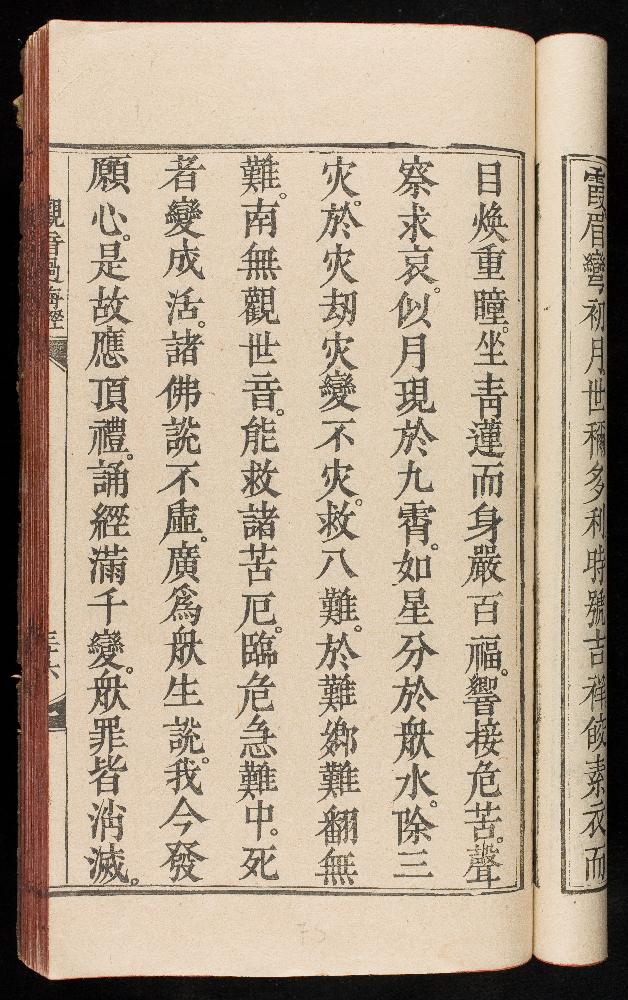 霞眉彎初月世稱多利時號吉祥餙素衣而
目煥重瞳。坐靑蓮而身嚴百福。響接危苦。聲
察求哀。似月現於九霄。如星分於衆水。除三
灾。於灾刼灾變不灾。救八難。於難鄕難翻無
難。南無觀世音。能救諸苦厄。臨危急難中。死
者變成活。諸佛說不虛。廣爲衆生說。我今發
願心。是故應頂禮。誦經滿千變。衆罪皆消滅。
觀音過海經
三六